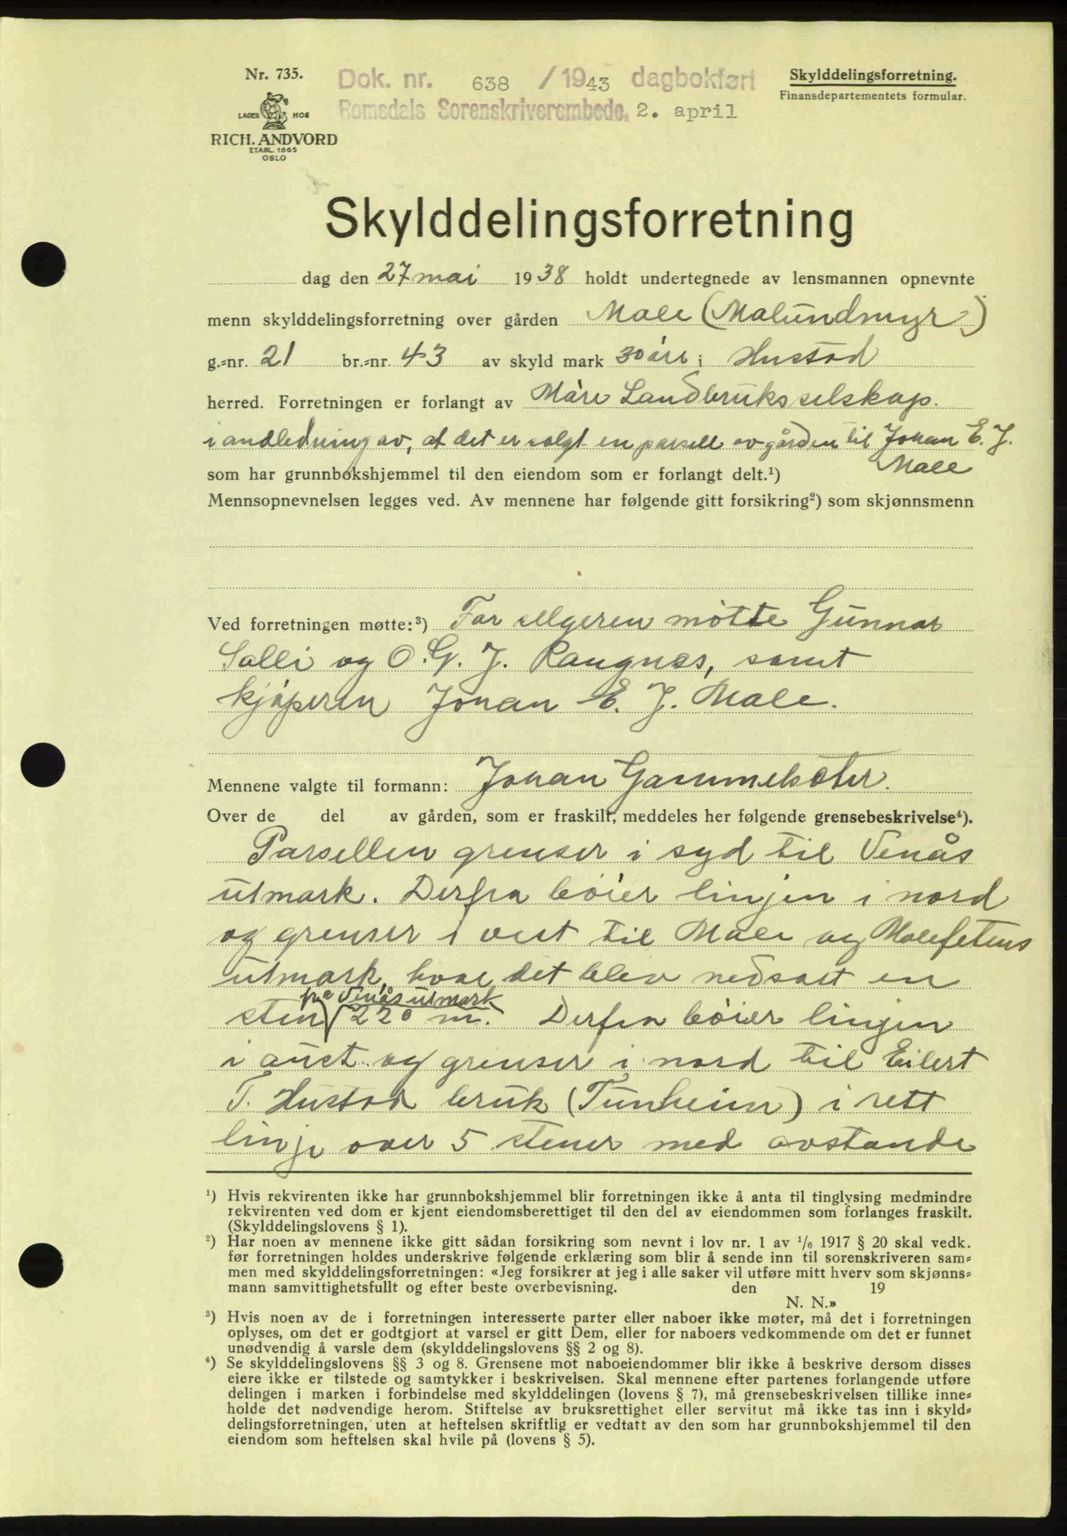 Nr. 735.
LAGER HOS
RICH. ANDVORD
ETABL. 1865
OSLO
Dok. nr. 638 / 1943 dagbokført
Romsdals Sorenskriverembede, 2. april
Skylddelingsforretning.
Finansdepartementets formular.
Skylddelingsforretning
dag den 27 mai 1938 holdt undertegnede av lensmannen opnevnte
menn skylddelingsforretning over gården Male (Malundmyr)
g.-nr. 21 br.-nr. 43 av skyld mark 30 øre i Hustad
herred. Forretningen er forlangt av Møre Landbruksselskap.
i andledning av, at det er solgt en parsell av gården til Johan E. J.
Male
som har grunnbokshjemmel til den eiendom som er forlangt delt.¹)
Mennsopnevnelsen legges ved. Av mennene har følgende gitt forsikring²) som skjønnsmenn
Ved forretningen møtte:³) For selgeren møtte Gunnar
Solli og O. G. J. Raugnes, samt
kjøperen Johan E. J. Male.
Mennene valgte til formann: Johan Gammelsæter.
Over de del av gården, som er fraskilt, meddeles her følgende grensebeskrivelse⁴).
Parsellen grenser i syd til Venås
utmark. Derfra bøier linjen i nord
og grenser i vest til Male og Malefetens
utmark, hvor det blev nedsatt en
fra Venås utmark
sten √ 220 m. Derfra bøier linjen
i aust og grenser i nord til Eilert
T. Hustad bruk (Tunheim) i rett
linje over 5 stener med avstande
¹) Hvis rekvirenten ikke har grunnbokshjemmel blir forretningen ikke å anta til tinglysing medmindre
rekvirenten ved dom er kjent eiendomsberettiget til den del av eiendommen som forlanges fraskilt.
(Skylddelingslovens § 1).
²) Har noen av mennene ikke gitt sådan forsikring som nevnt i lov nr. 1 av 1/6 1917 § 20 skal vedk.
før forretningen holdes underskrive følgende erklæring som blir å sende inn til sorenskriveren sam=
men med skylddelingsforretningen: «Jeg forsikrer at jeg i alle saker vil utføre mitt hverv som skjønns=
mann samvittighetsfullt og efter beste overbevisning. den 19
N. N.»
³) Hvis noen av de i forretningen interesserte parter eller naboer ikke møter, må det i forretningen
oplyses, om det er godtgjort at varsel er gitt Dem, eller for naboers vedkommende om det er funnet
unødvendig å varsle dem (skylddelingslovens §§ 2 og 8).
⁴) Se skylddelingslovens §§ 3 og 8. Grensene mot naboeiendommer blir ikke å beskrive dersom disses
eiere ikke er tilstede og samtykker i beskrivelsen. Skal mennene efter partenes forlangende utføre
delingen i marken i forbindelse med skylddelingen (lovens § 7), må grensebeskrivelsen tillike inne=
holde det nødvendige herom. Stiftelse av bruksrettighet eller servitut må ikke tas inn i skyld=
delingsforretningen, uten at heftelsen skriftlig er vedtatt av den som har grunnbokshjemmel til den
eiendom som heftelsen skal hvile på (lovens § 5).